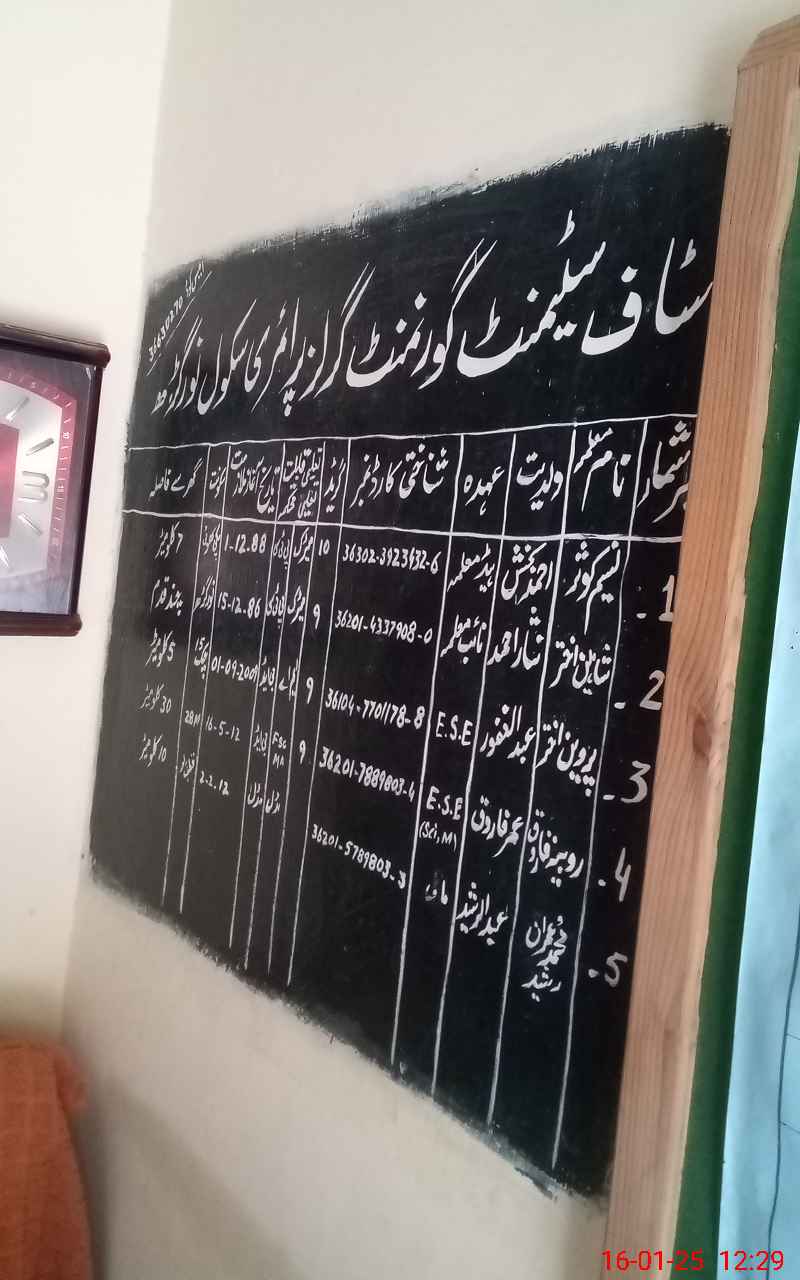 سٹاف سٹیمنٹ گورنمنٹ گرلز پرائمری سکول نورگڑھ
36630270
نمبر شمار نام معلمہ ولدیت عہدہ شناختی کارڈ نمبر گریڈ تعلیمی قابلیت تعلیمی محکمہ تاریخ آغاز ملازمت سکونت گھر سے فاصلہ
1- نسیم کوثر احمد بخش ہیڈ معلمہ 36302-3923432-6 10 میٹرک پی ٹی سی 1-12.88 7 کلومیٹر
2- شاہین اختر نثار احمد نائب معلمہ 36201-4337908-0 9 میٹرک پی ٹی سی 15-12.86 نورگڑھ چند قدم
3- پروین اختر عبدالغفور E.S.E 36104-7701178-8 9 ایم اے بی ایڈ 01-09-2009 چک 15 5 کلومیٹر
4- روبینہ فاروق عمر فاروق E.S.E (Sci, M) 36201-7889803-4 9 FSc MA بی ایڈ 16-5-12 28M 30 کلومیٹر
5- محمد عمران رشید عبدالرشید 36201-5789803-3 مڈل مڈل 2-2-12 10 کلومیٹر
16-01-25 12:29